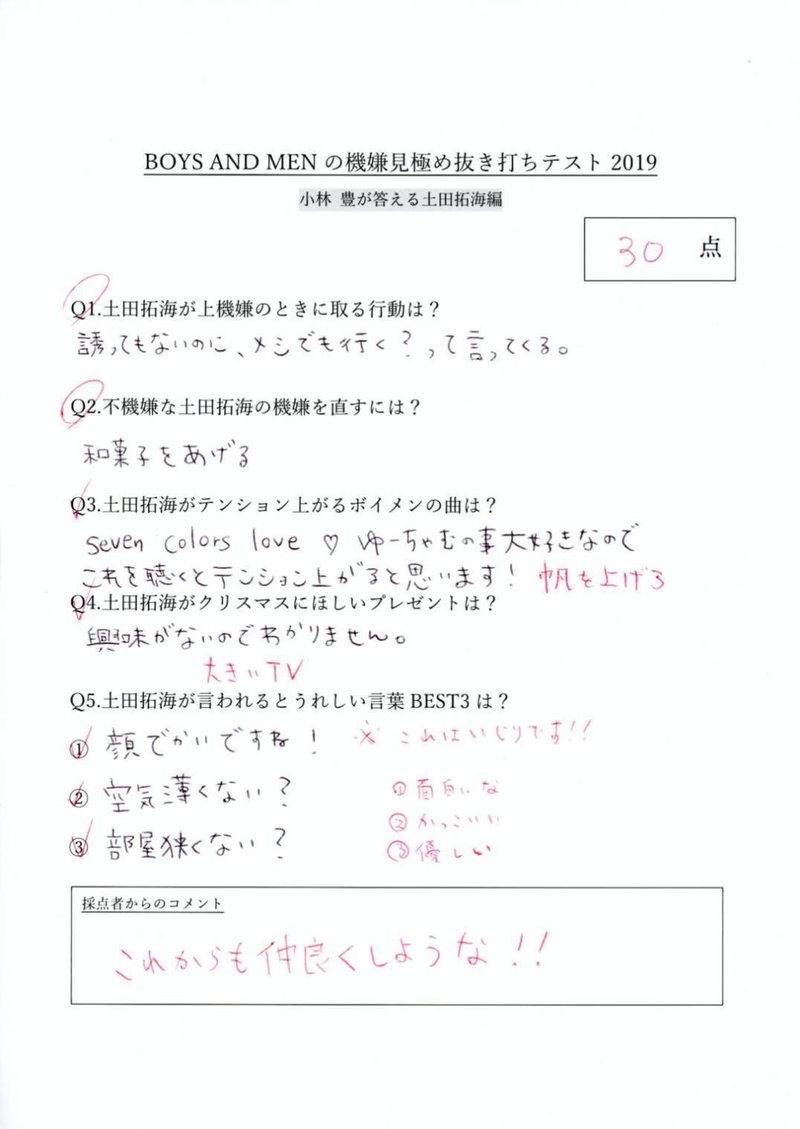 BOYS AND MEN の機嫌見極め抜き打ちテスト 2019
小林 豊が答える土田拓海編
30 点
Q1.土田拓海が上機嫌のときに取る行動は？
誘ってもないのに、メシでも行く？って言ってくる。
Q2.不機嫌な土田拓海の機嫌を直すには？
和菓子をあげる
Q3.土田拓海がテンション上がるボイメンの曲は？
seven colors love ♡ ゆーちゃむの事大好きなので
これを聴くとテンション上がると思います！ 帆を上げろ
Q4.土田拓海がクリスマスにほしいプレゼントは？
興味がないのでわかりません。
大きいTV
Q5.土田拓海が言われるとうれしい言葉 BEST3 は？
① 顔でかいですね！ ※ これはいじりです!!
② 空気薄くない？ ①面白いな
②かっこいい
③ 部屋狭くない？ ③優しい
採点者からのコメント
これからも仲良くしような!!